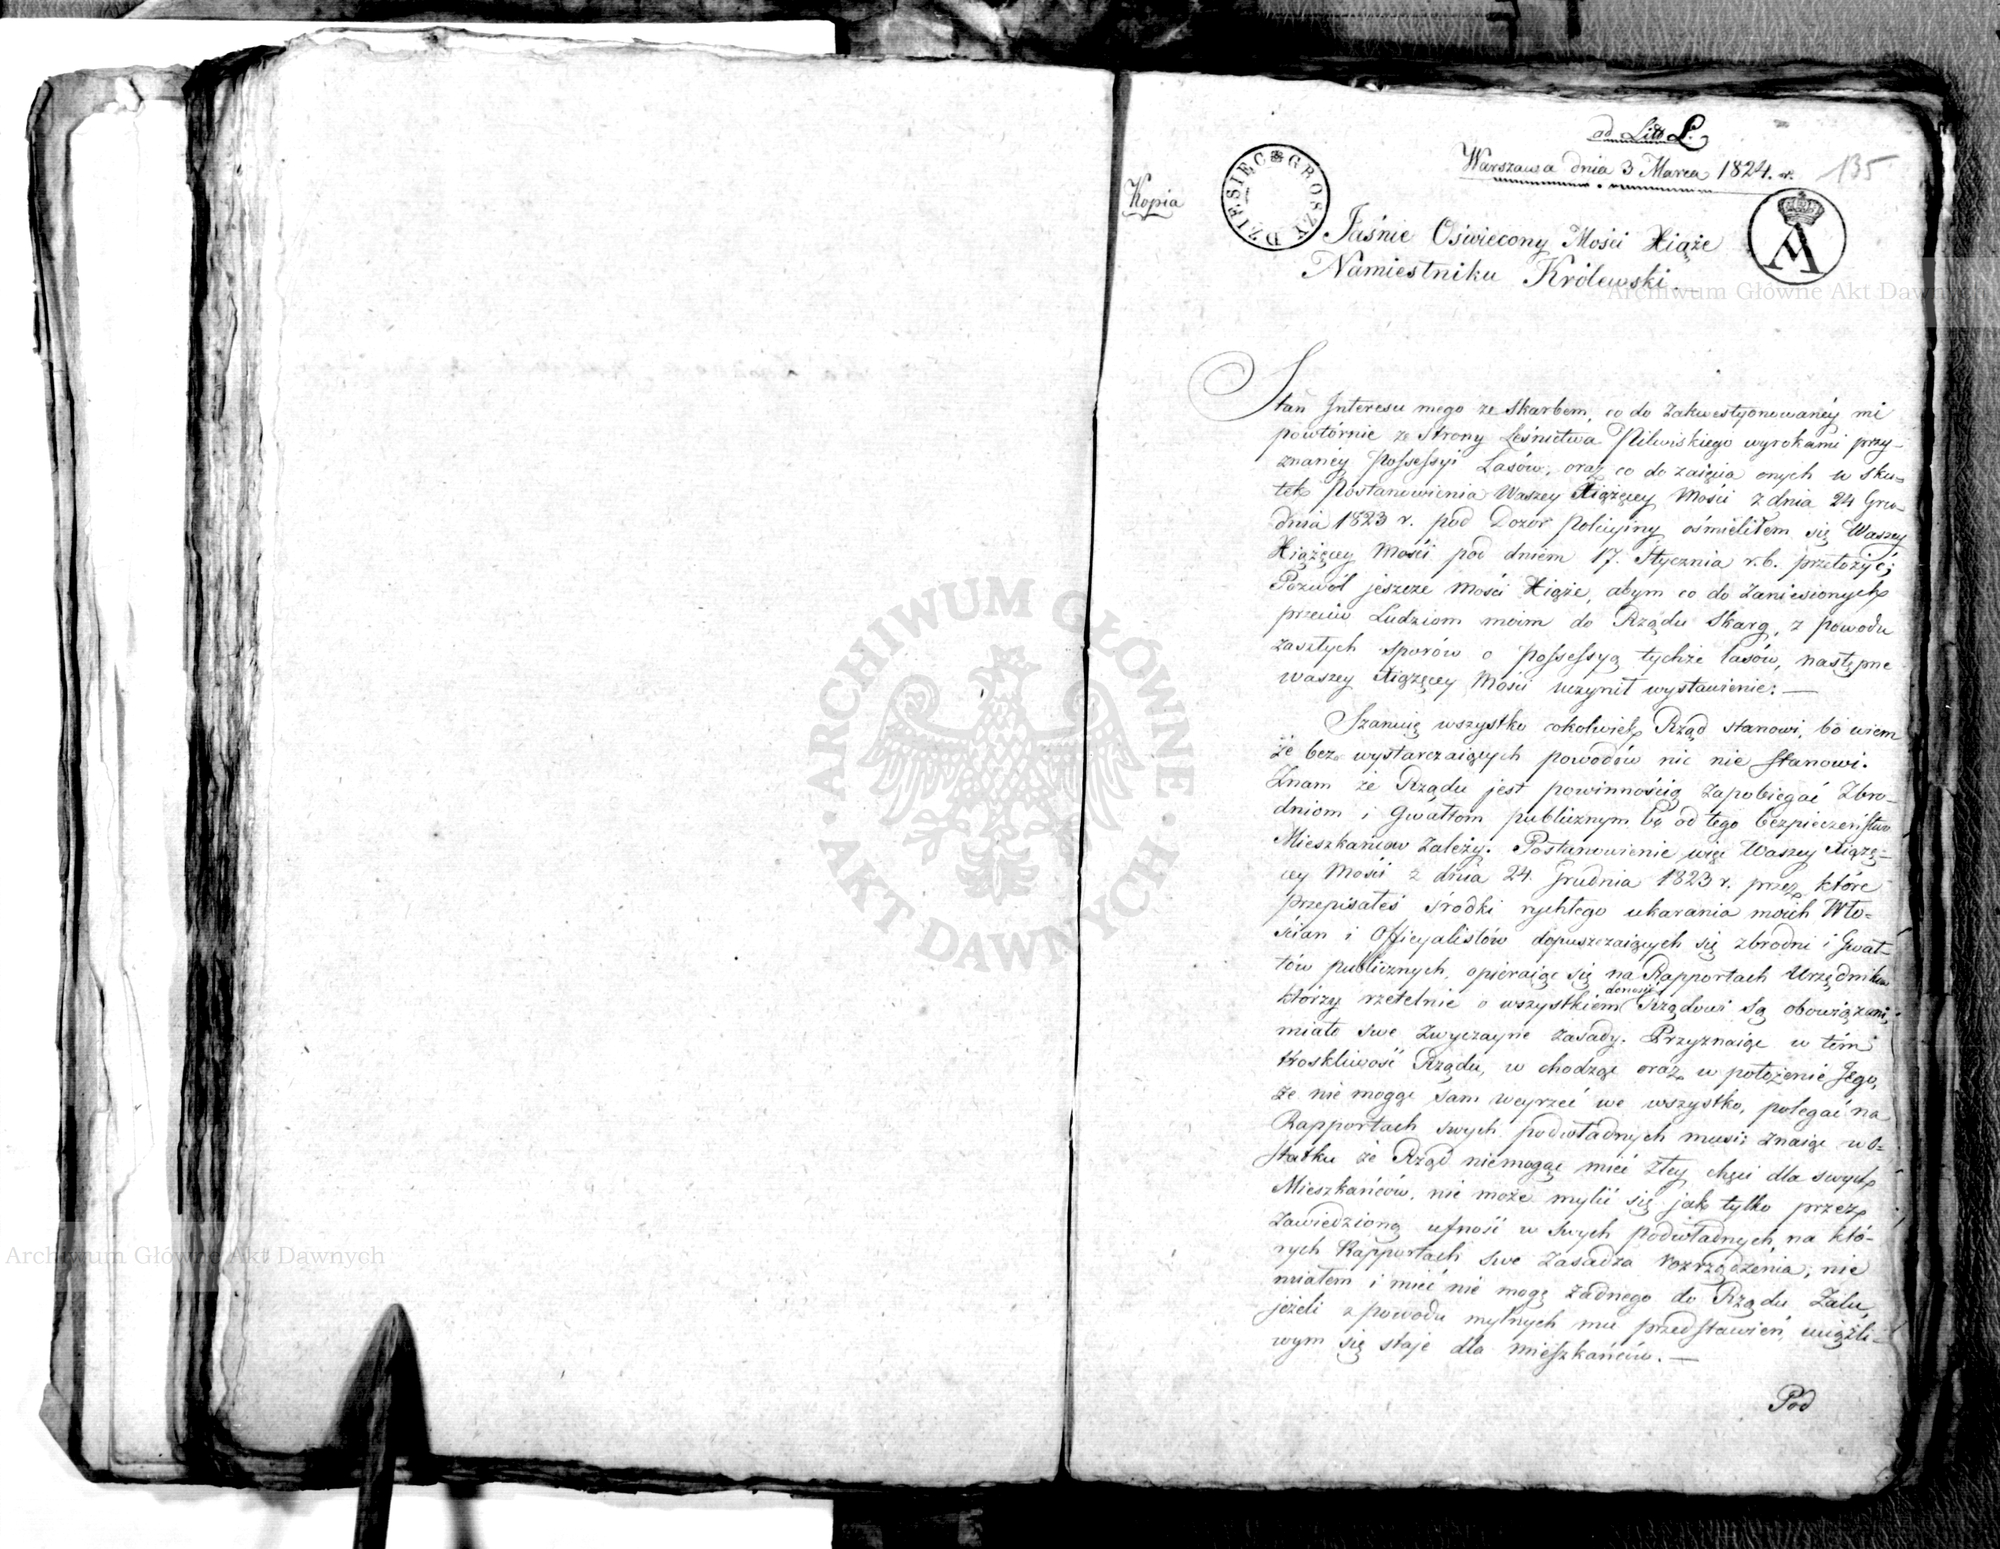 ad Litt L.
Warszawa dnia 3 Marca 1824. r.
135
Kopia
DZIESIĘC GROSZY
Jaśnie Oświecony Mości Xiąże
Namiestniku Królewski.
Archiwum Główne Akt Dawnych
Stan Interesu mego ze Skarbem, co do Zakwestyonowanéy mi
powtórnie ze Strony Leśnictwa Pilwiskiego wyrokami przy-
znanéy Possessyi Lasów, oraz co do zaięcia onych w sku-
tek Postanowienia Waszey Xiążęcey Mości z dnia 24 Gru-
dnia 1823 r. pod Dozór Policyiny ośmieliłem się Waszey
Xiążęcey Mości pod dniem 17. Stycznia r.b. przełożyć;
Pozwól jeszcze Mości Xiąże, abym co do Zaniesionych
przeciw Ludziom moim do Rządu Skarg, z powodu
zaszłych sporów o Possessyą tychże lasów, następne
waszey Xiążęcey Mości uczynił wystawienie: —
Szanuię wszystko cokolwiek Rząd stanowi, bo wiem
że bez wystarczaiących powodów nic nie stanowi.
Znam że Rządu jest powinnością zapobiegać Zbro-
dniom i Gwałtom publicznym bo od tego bezpieczeństwo
Mieszkańców Zależy. Postanowienie więc Waszey Xiążę-
cey Mości z dnia 24. Grudnia 1823 r. przez które
przepisałeś środki rychłego ukarania moich Wło-
ścian i Officyalistów dopuszczaiących się zbrodni i Gwał-
tów publicznych, opieraiąc się na Rapportach Urzędników
którzy rzetelnie o wszystkiem donosić Rządowi są obowiązani,
miało swe Zwyczayne Zasady. Przyznaię w tém
troskliwość Rządu, w chodzę oraz w położenie Jego,
że nie mogąc sam weyrzeć we wszystko, polegać na
Rapportach swych podwładnych musi; znaiąc w o-
statku że Rząd niemogąc mieć złey chęci dla swych
Mieszkańców, nie może mylić się jak tylko przez
Zawiedzioną ufność w swych podwładnych, na któ-
rych Rapportach swe Zasadza rozrządzenia, nie
miałem i mieć nie mogę Żadnego do Rządu Żalu
jeżeli z powodu mylnych mu przedstawień, uciążli-
wym się staje dla mieszkańców. —
Pod
ARCHIWUM GŁÓWNE AKT DAWNYCH
Archiwum Główne Akt Dawnych